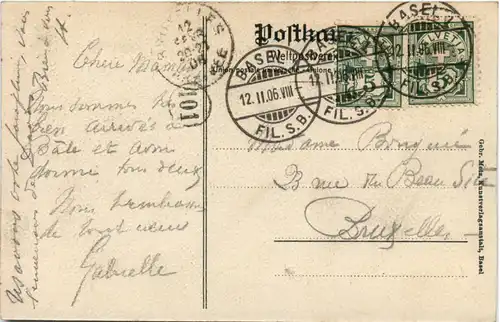 Postkarte
Weltpostverein
BRUXELLES
12
20-21
06
1101
BASEL 2
12.II.06.VIII–
FIL. S. B.
BASEL 2
12.II.06.VIII–
FIL. S. B.
BASEL 2
12.II.06.VIII–
FIL. S. B.
HELVETIA
5
Chère Maman
Nous sommes
bien arrivés à
Bâle et avons
dormi tous deux
Nous embrassons
de tout cœur
Gabrielle
Madame
3 rue du Beau Site
Bruxelles
Gebr. Metz, Kunstverlagsanstalt, Basel